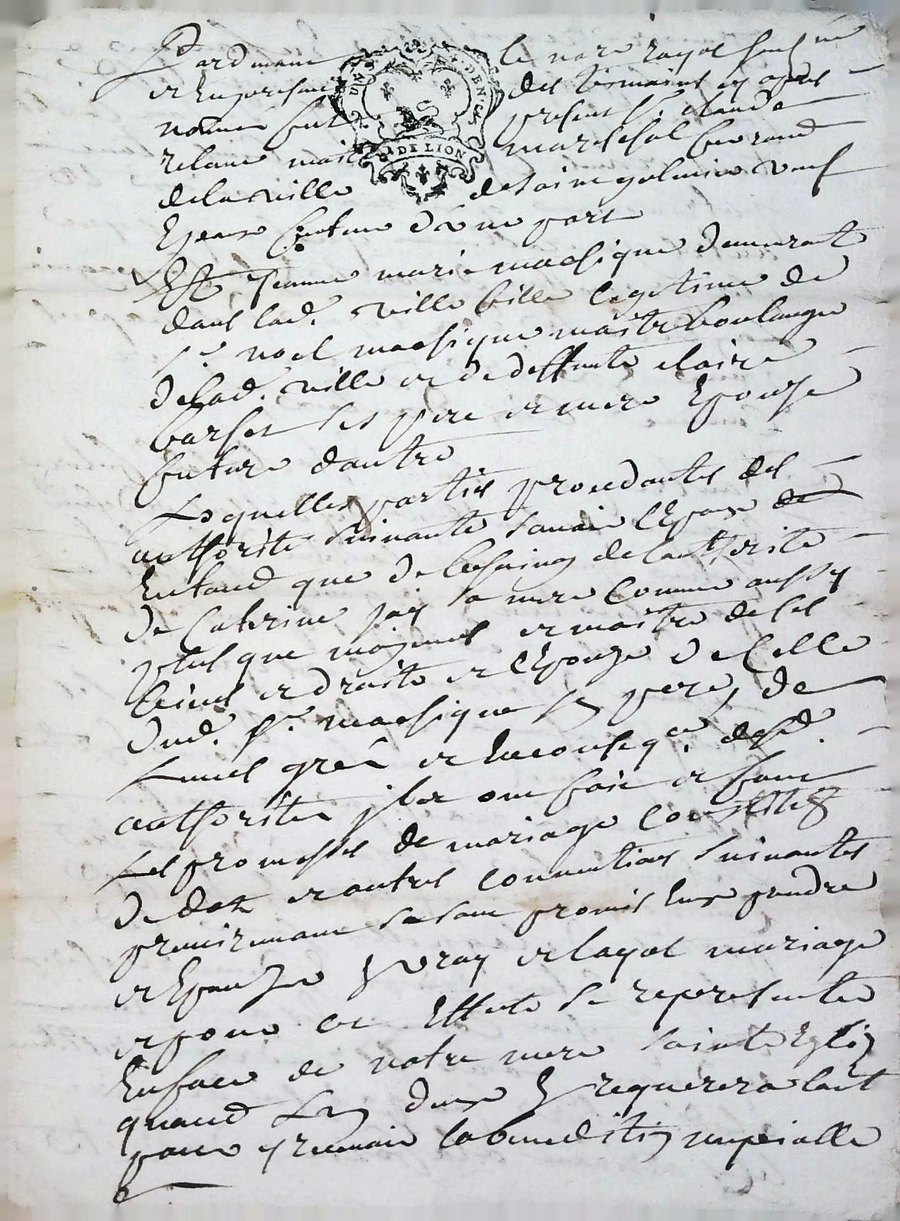 Pardevant le nore royal soussigné
et en presence des temoins cy apres
nommes fut present Sr. claude
relave maitre mareschal ferrand
de la ville de saint galmier veuf
Epoux futur d'une part
Et Jeanne marie massique demeurant
dans lad. ville fille legitime de
Sr. noel massique maitre boulanger
de lad. ville et de deffunte claire
barset ses pere et mere Epouse
future d'autre
Lesquelles parties procedantes des
authorites suivantes savoir l'Epoux de
En tant que de besoing de l'authorite
de Catrine jay sa mere comme aussy
plus que majeur et maitre de ses
biens et droits et l'Epouze de celle
dud. Sr. massique son pere, de
Leurs grés et En consequce. desd.
authorites jls ont fait et font
Les promesses de mariage constitt
de dot et autres conventions suivantes
premirement se sont promis Eux prendre
et Epouzer En vray et loyal mariage
et pour cet Effet se representer
En face de notre mere sainte Eglize
quand L'un deux En requerera lautt
pour y recevoir la benediction nuptialle
DE LION